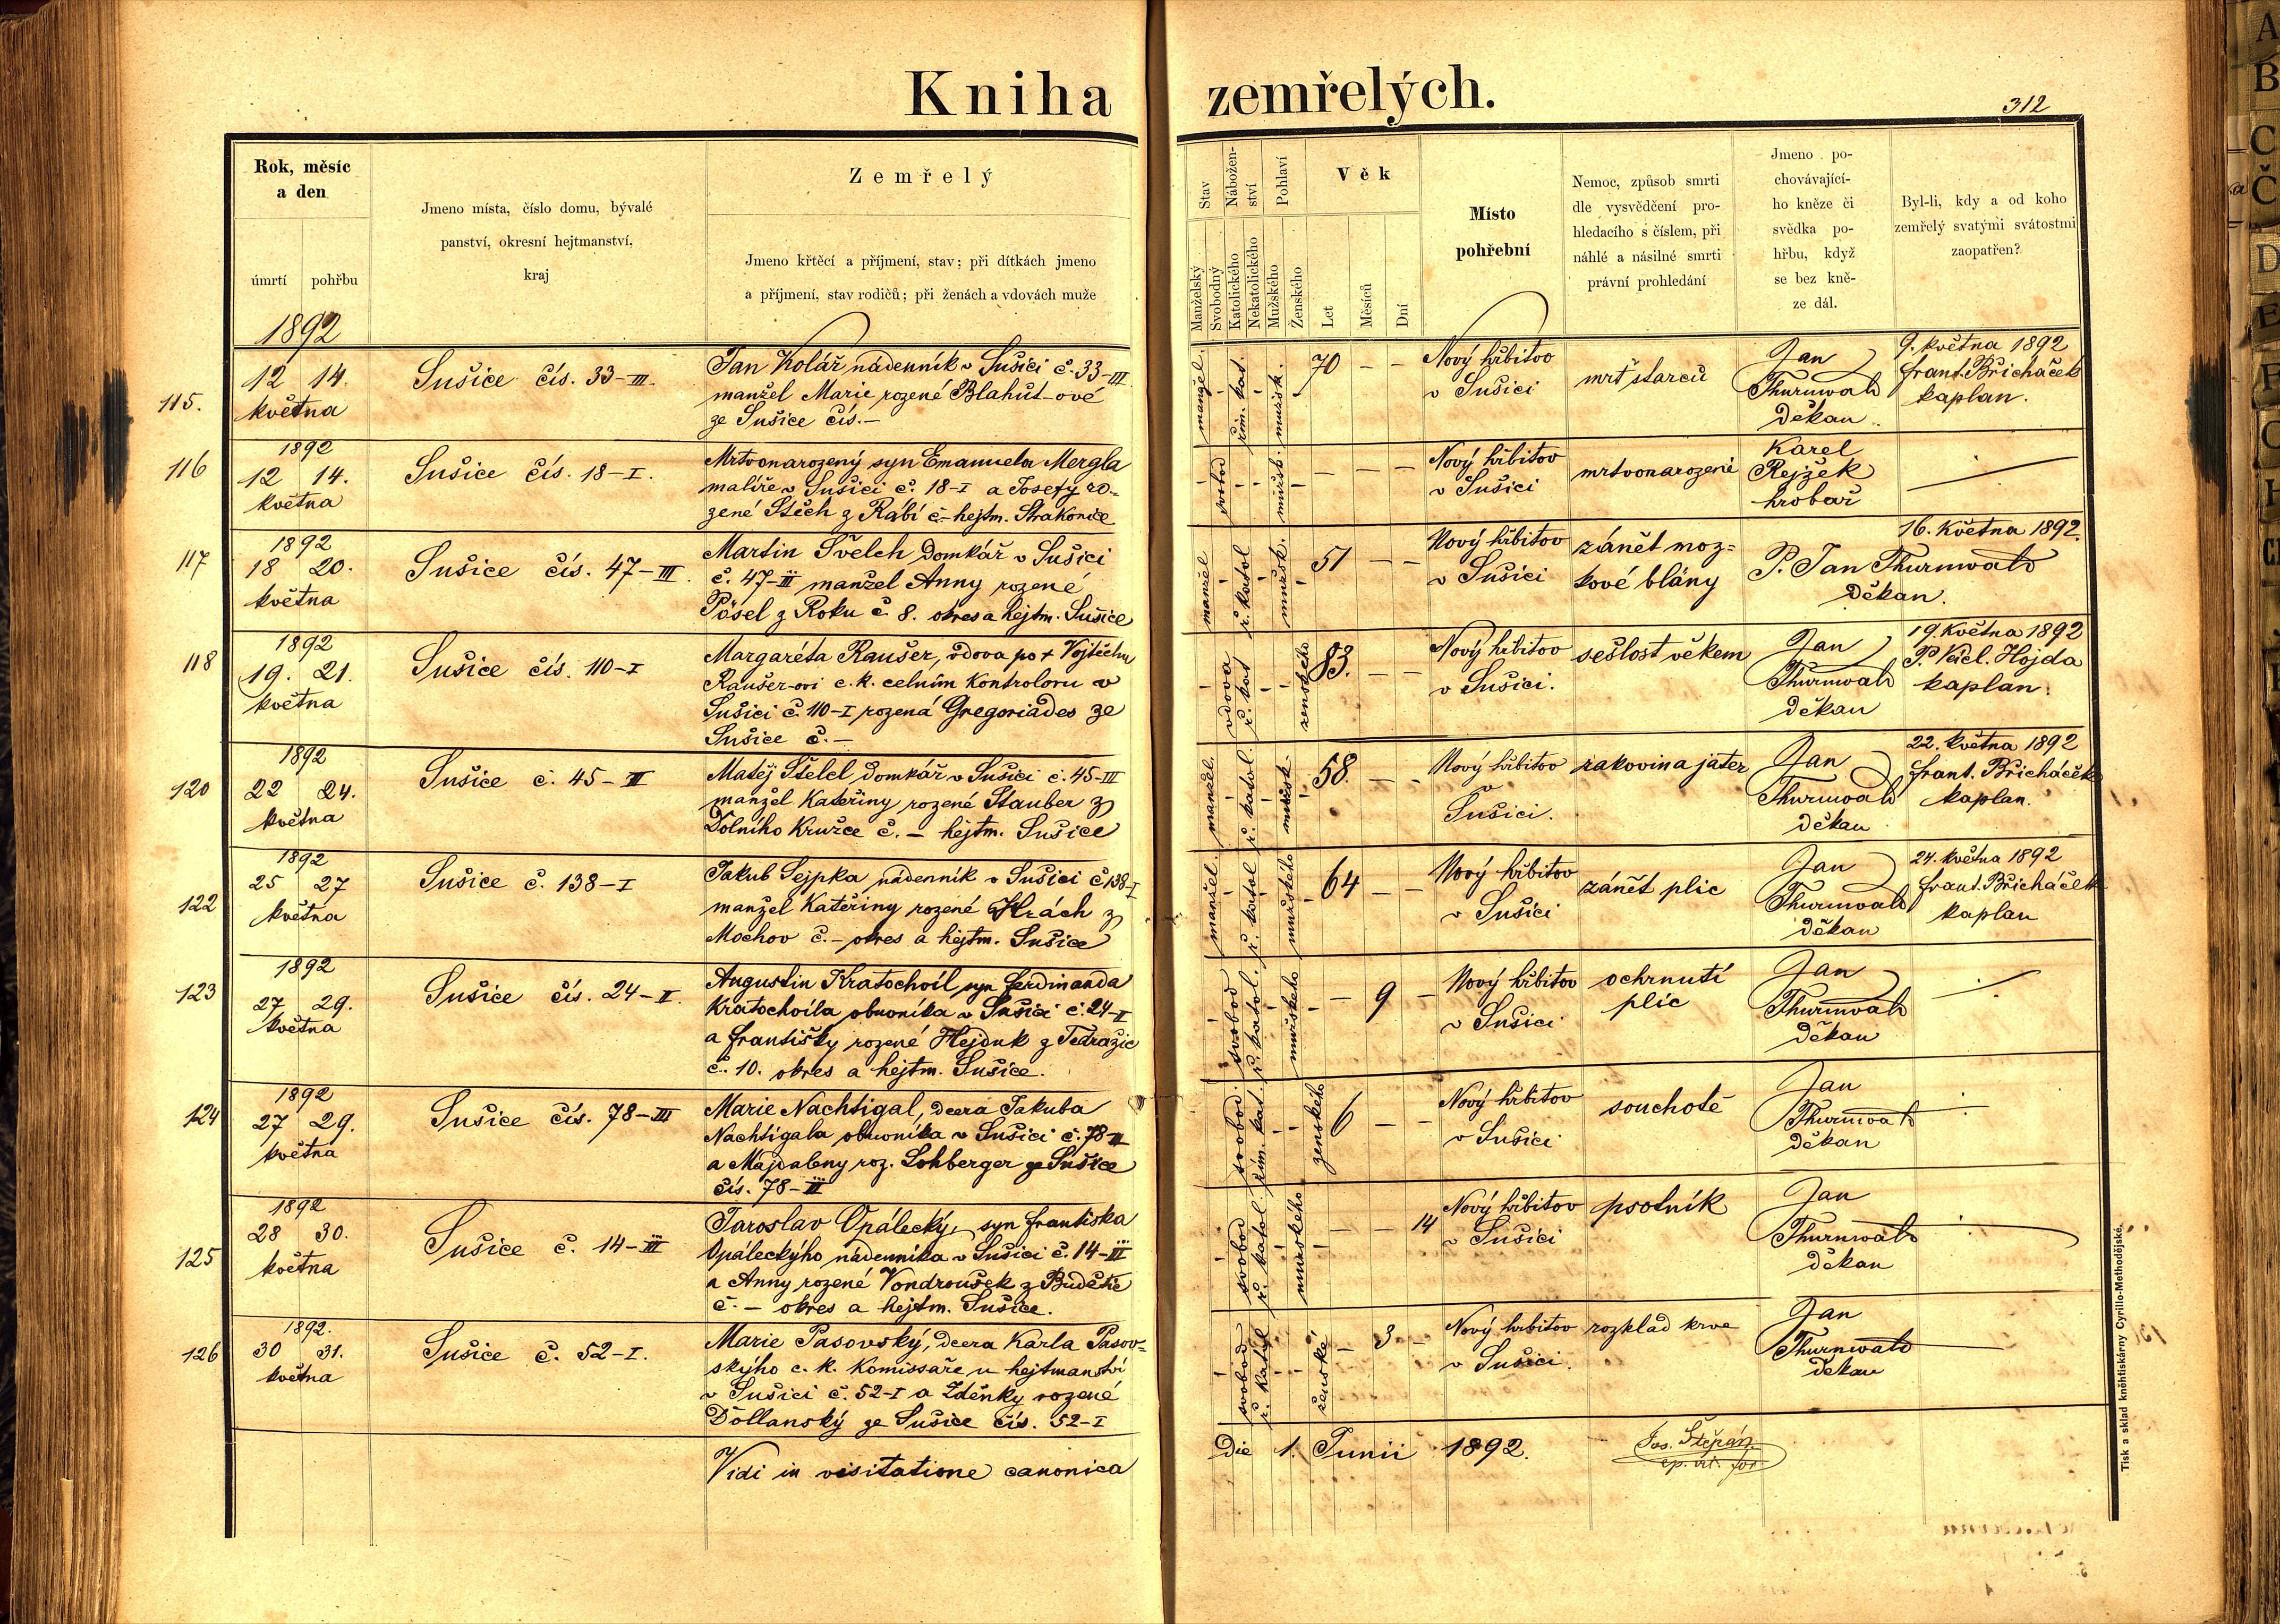 Kniha zemřelých.
312
Rok, měsíc
a den
úmrtí pohřbu
Jmeno místa, číslo domu, bývalé
panství, okresní hejtmanství,
kraj
Zemřelý
Jmeno křtěcí a příjmení, stav; při dítkách jmeno
a příjmení, stav rodičů; při ženách a vdovách muže
Stav
Manželský
Svobodný
Nábožen-
ství
Katolického
Nekatolického
Pohlaví
Mužského
Ženského
Věk
Let
Měsíců
Dní
Místo
pohřební
Nemoc, způsob smrti
dle vysvědčení pro-
hledacího s číslem, při
náhlé a násilné smrti
právní prohledání
Jmeno po-
chovávající-
ho kněze či
svědka po-
hřbu, když
se bez kně-
ze dál.
Byl-li, kdy a od koho
zemřelý svatými svátostmi
zaopatřen?
1892
115.
12 14.
května
Sušice čís. 33-III.
Jan Kolář nádenník v Sušici č. 33-III
manžel Marie rozené Blahut-ové
ze Sušice čís.—
manžel.
řím. kat.
mužsk.
70 — —
Nový hřbitov
v Sušici
mrť starců
Jan
Thurnwald
děkan.
9. května 1892
frant. Břicháček
kaplan.
116
1892
12 14.
května
Sušice čís. 18-I.
Mrtvonarozený syn Emanuela Mergla
malíře v Sušici č. 18-I a Josefy ro-
zené Stěch z Rábí č.- hejtm. Strakonice
svobod
mužsk.
— — —
Nový hřbitov
v Sušici
mrtvonarozené
Karel
Rejžek
hrobař
117
1892
18 20.
května
Sušice čís. 47-III.
Martin Švelch domkář v Sušici
č. 47-III manžel Anny rozené
Pösel z Roku č. 8. okres a hejtm. Sušice
manžel
ř. katol
mužsk.
51 — —
Nový hřbitov
v Sušici
zánět moz=
kové blány
P. Jan Thurnwald
děkan.
16. května 1892.
118
1892
19. 21.
května
Sušice čís. 110-I
Margaréta Raušer, vdova po + Vojtěchu
Raušer-ovi c. k. celním kontroloru v
Sušici č. 110-I rozená Gregoriades ze
Sušice č.—
vdova
ř. kat
ženského
83. — —
Nový hřbitov
v Sušici.
sešlost věkem
Jan
Thurnwald
děkan
19. května 1892
P. Václ. Hojda
kaplan.
120
1892
22 24.
května
Sušice č. 45-III
Matěj Štelcl domkář v Sušici č. 45-III
manžel Kateřiny rozené Stauber z
Dolního Kružce č. — hejtm. Sušice
manžel.
ř. katol.
mužsk
58. — —
Nový hřbitov
v
Sušici.
rakovina jater
Jan
Thurnwald
děkan
22. května 1892
frant. Břicháček
kaplan.
122
1892
25 27
května
Sušice č. 138-I
Jakub Sejpka nádenník v Sušici č 138-I
manžel Kateřiny rozené Hrách z
Mochov č.- okres a hejtm. Sušice
manžel.
ř. katol
mužského
64 — —
Nový hřbitov
v Sušici
zánět plic
Jan
Thurnwald
děkan
24. května 1892
frant. Břicháček
kaplan
123
1892
27 29.
května
Sušice čís. 24-II.
Augustin Kratochvíl syn Ferdinanda
Kratochvíla obuvníka v Sušici č. 24-II
a Františky rozené Hejduk z Tedražic
č. 10. okres a hejtm. Sušice.
svobod
ř. katol.
mužského
— 9 —
Nový hřbitov
v Sušici
ochrnutí
plic
Jan
Thurnwald
děkan
124
1892
27 29.
května
Sušice čís. 78-III
Marie Nachtigal, dcera Jakuba
Nachtigala obuvníka v Sušici č. 78-III
a Majdaleny roz. Lohberger ze Sušice
čís. 78-III
svobod.
řím. kat.
ženského
6 — —
Nový hřbitov
v Sušici
souchotě
Jan
Thurnwald
děkan
125
1892
28 30.
května
Sušice č. 14-III
Jaroslav Opálecký, syn Františka
Opáleckýho nádenníka v Sušici č. 14-III
a Anny rozené Vondroušek z Budětic
č. — okres a hejtm. Sušice.
svobod
ř. katol
mužského
— — 14
Nový hřbitov
v Sušici
psotník
Jan
Thurnwald
děkan
126
1892.
30 31.
května
Sušice č. 52-I.
Marie Pasovský, dcera Karla Pasov-
skýho c. k. komissaře u hejtmanství
v Sušici č. 52-I a Zděňky rozené
Dollanský ze Sušice čís. 52-I
svobod
ř. katol
ženské
— 3 —
Nový hřbitov
v Sušici.
rozklad krve
Jan
Thurnwald
děkan
Vidi in visitatione canonica
Die 1. Junii 1892.
Jos. Štěpán
Tisk a sklad kněhtiskárny Cyrillo-Methodějské.